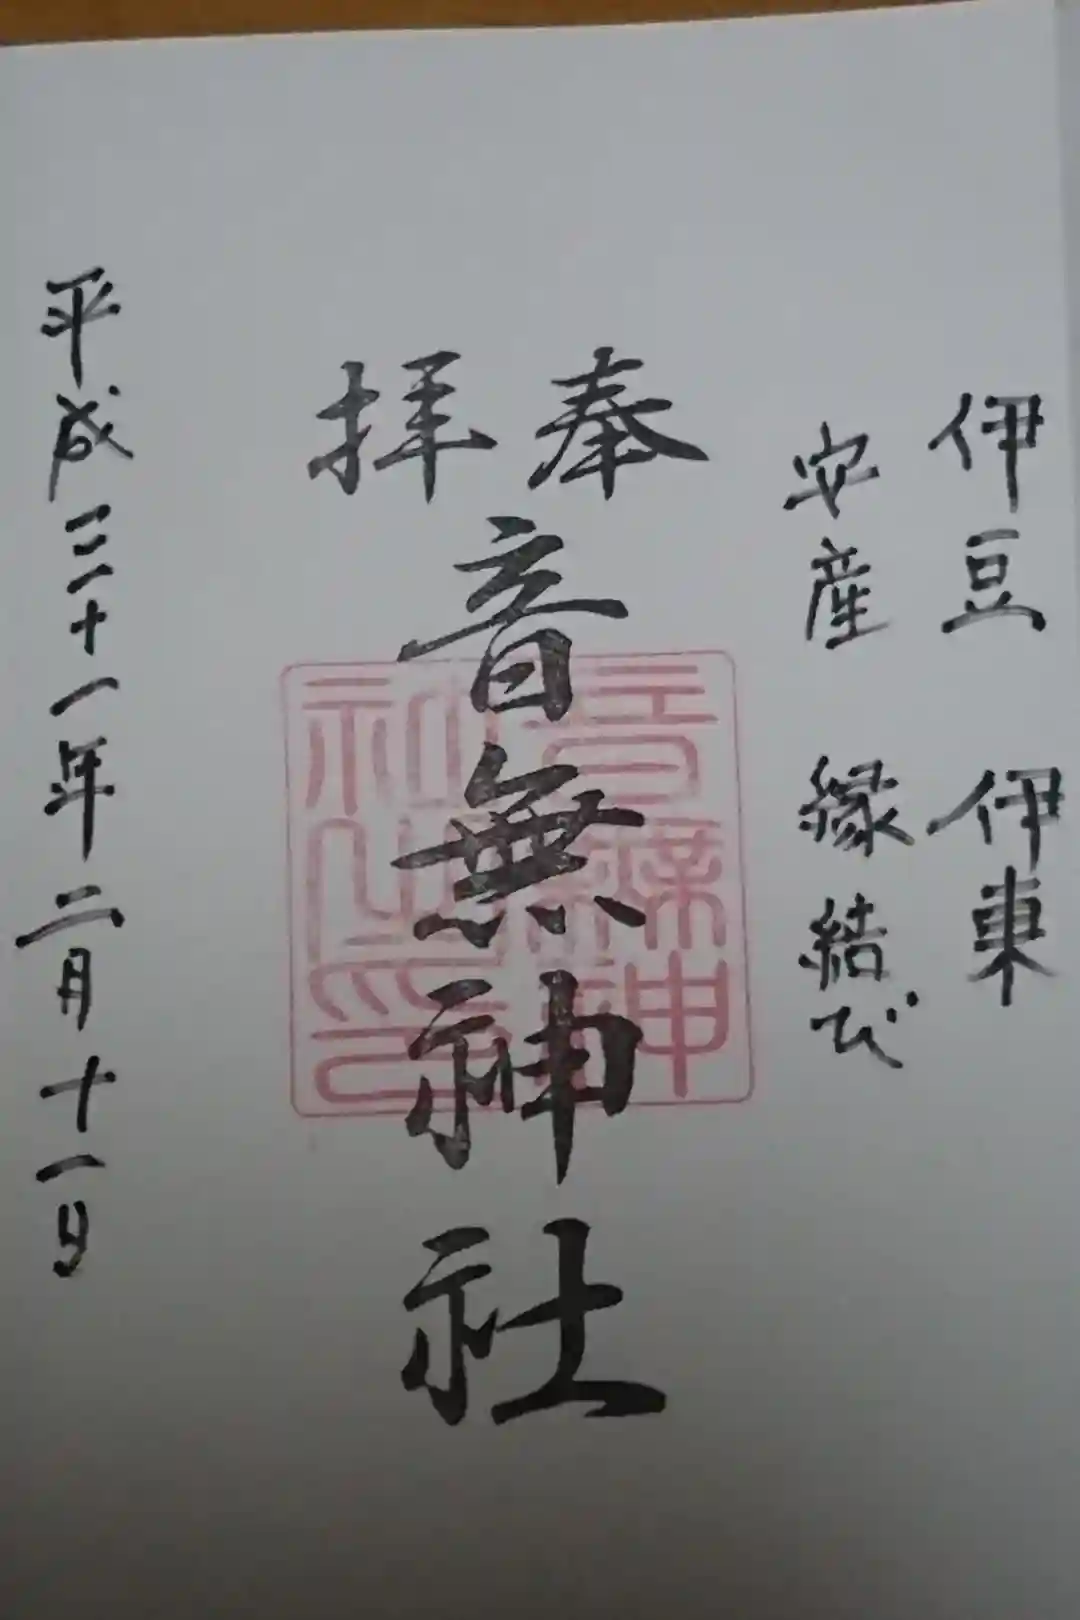 伊豆 伊東
安産 縁結び
奉拝
音無神社
音無神社之印
平成三十一年二月十一日